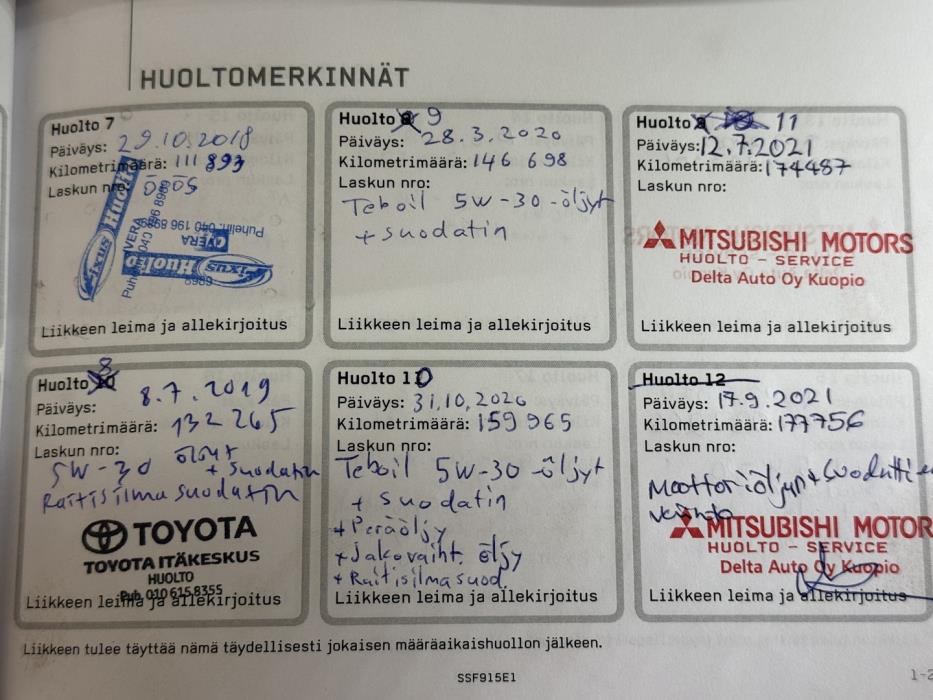 HUOLTOMERKINNÄT
Huolto 7
Päiväys: 29.10.2018
Kilometrimäärä: 111 893
Laskun nro:
Fixus Huolto
Puhelin. 040 196 8969
OVERA
Fixus Huolto
Liikkeen leima ja allekirjoitus
Huolto 9
Päiväys: 28.3.2020
Kilometrimäärä: 146 698
Laskun nro:
Teboil 5W-30 -öljyt
+ suodatin
Liikkeen leima ja allekirjoitus
Huolto 11
Päiväys: 12.7.2021
Kilometrimäärä: 174487
Laskun nro:
MITSUBISHI MOTORS
HUOLTO - SERVICE
Delta Auto Oy Kuopio
Liikkeen leima ja allekirjoitus
Huolto 8
Päiväys: 8.7.2019
Kilometrimäärä: 132 265
Laskun nro:
5W-30 öljyt + suodatin
Raitisilmasuodatin
TOYOTA
TOYOTA ITÄKESKUS
HUOLTO
Puh. 010 615 8355
Liikkeen leima ja allekirjoitus
Huolto 10
Päiväys: 31.10.2020
Kilometrimäärä: 159965
Laskun nro:
Teboil 5W-30 -öljyt
+ suodatin
+ Peräöljy
+ Jakovaiht. öljy
+ Raitisilmasuod.
Liikkeen leima ja allekirjoitus
Huolto 12
Päiväys: 17.9.2021
Kilometrimäärä: 177756
Laskun nro:
Moottoriöljyn + suodattimen
vaihto
MITSUBISHI MOTOR
HUOLTO - SERVICE
Delta Auto Oy Kuopio
Liikkeen leima ja allekirjoitus
Liikkeen tulee täyttää nämä täydellisesti jokaisen määräaikaishuollon jälkeen.
SSF915E1
1-2